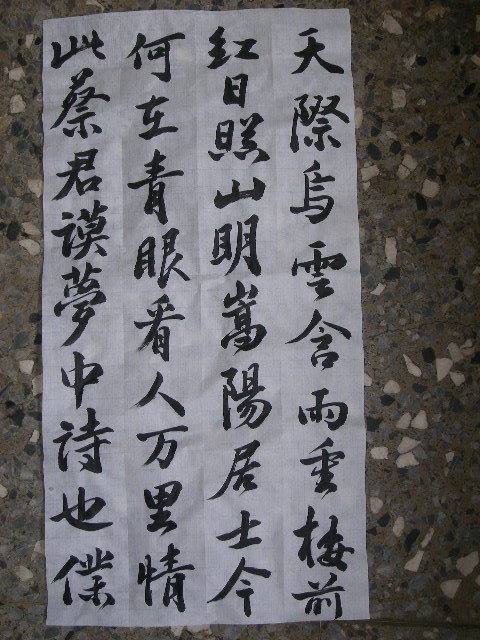 天際烏雲含雨重樓前
紅日照山明嵩陽居士今
何在青眼看人万里情
此蔡君謨夢中詩也僕